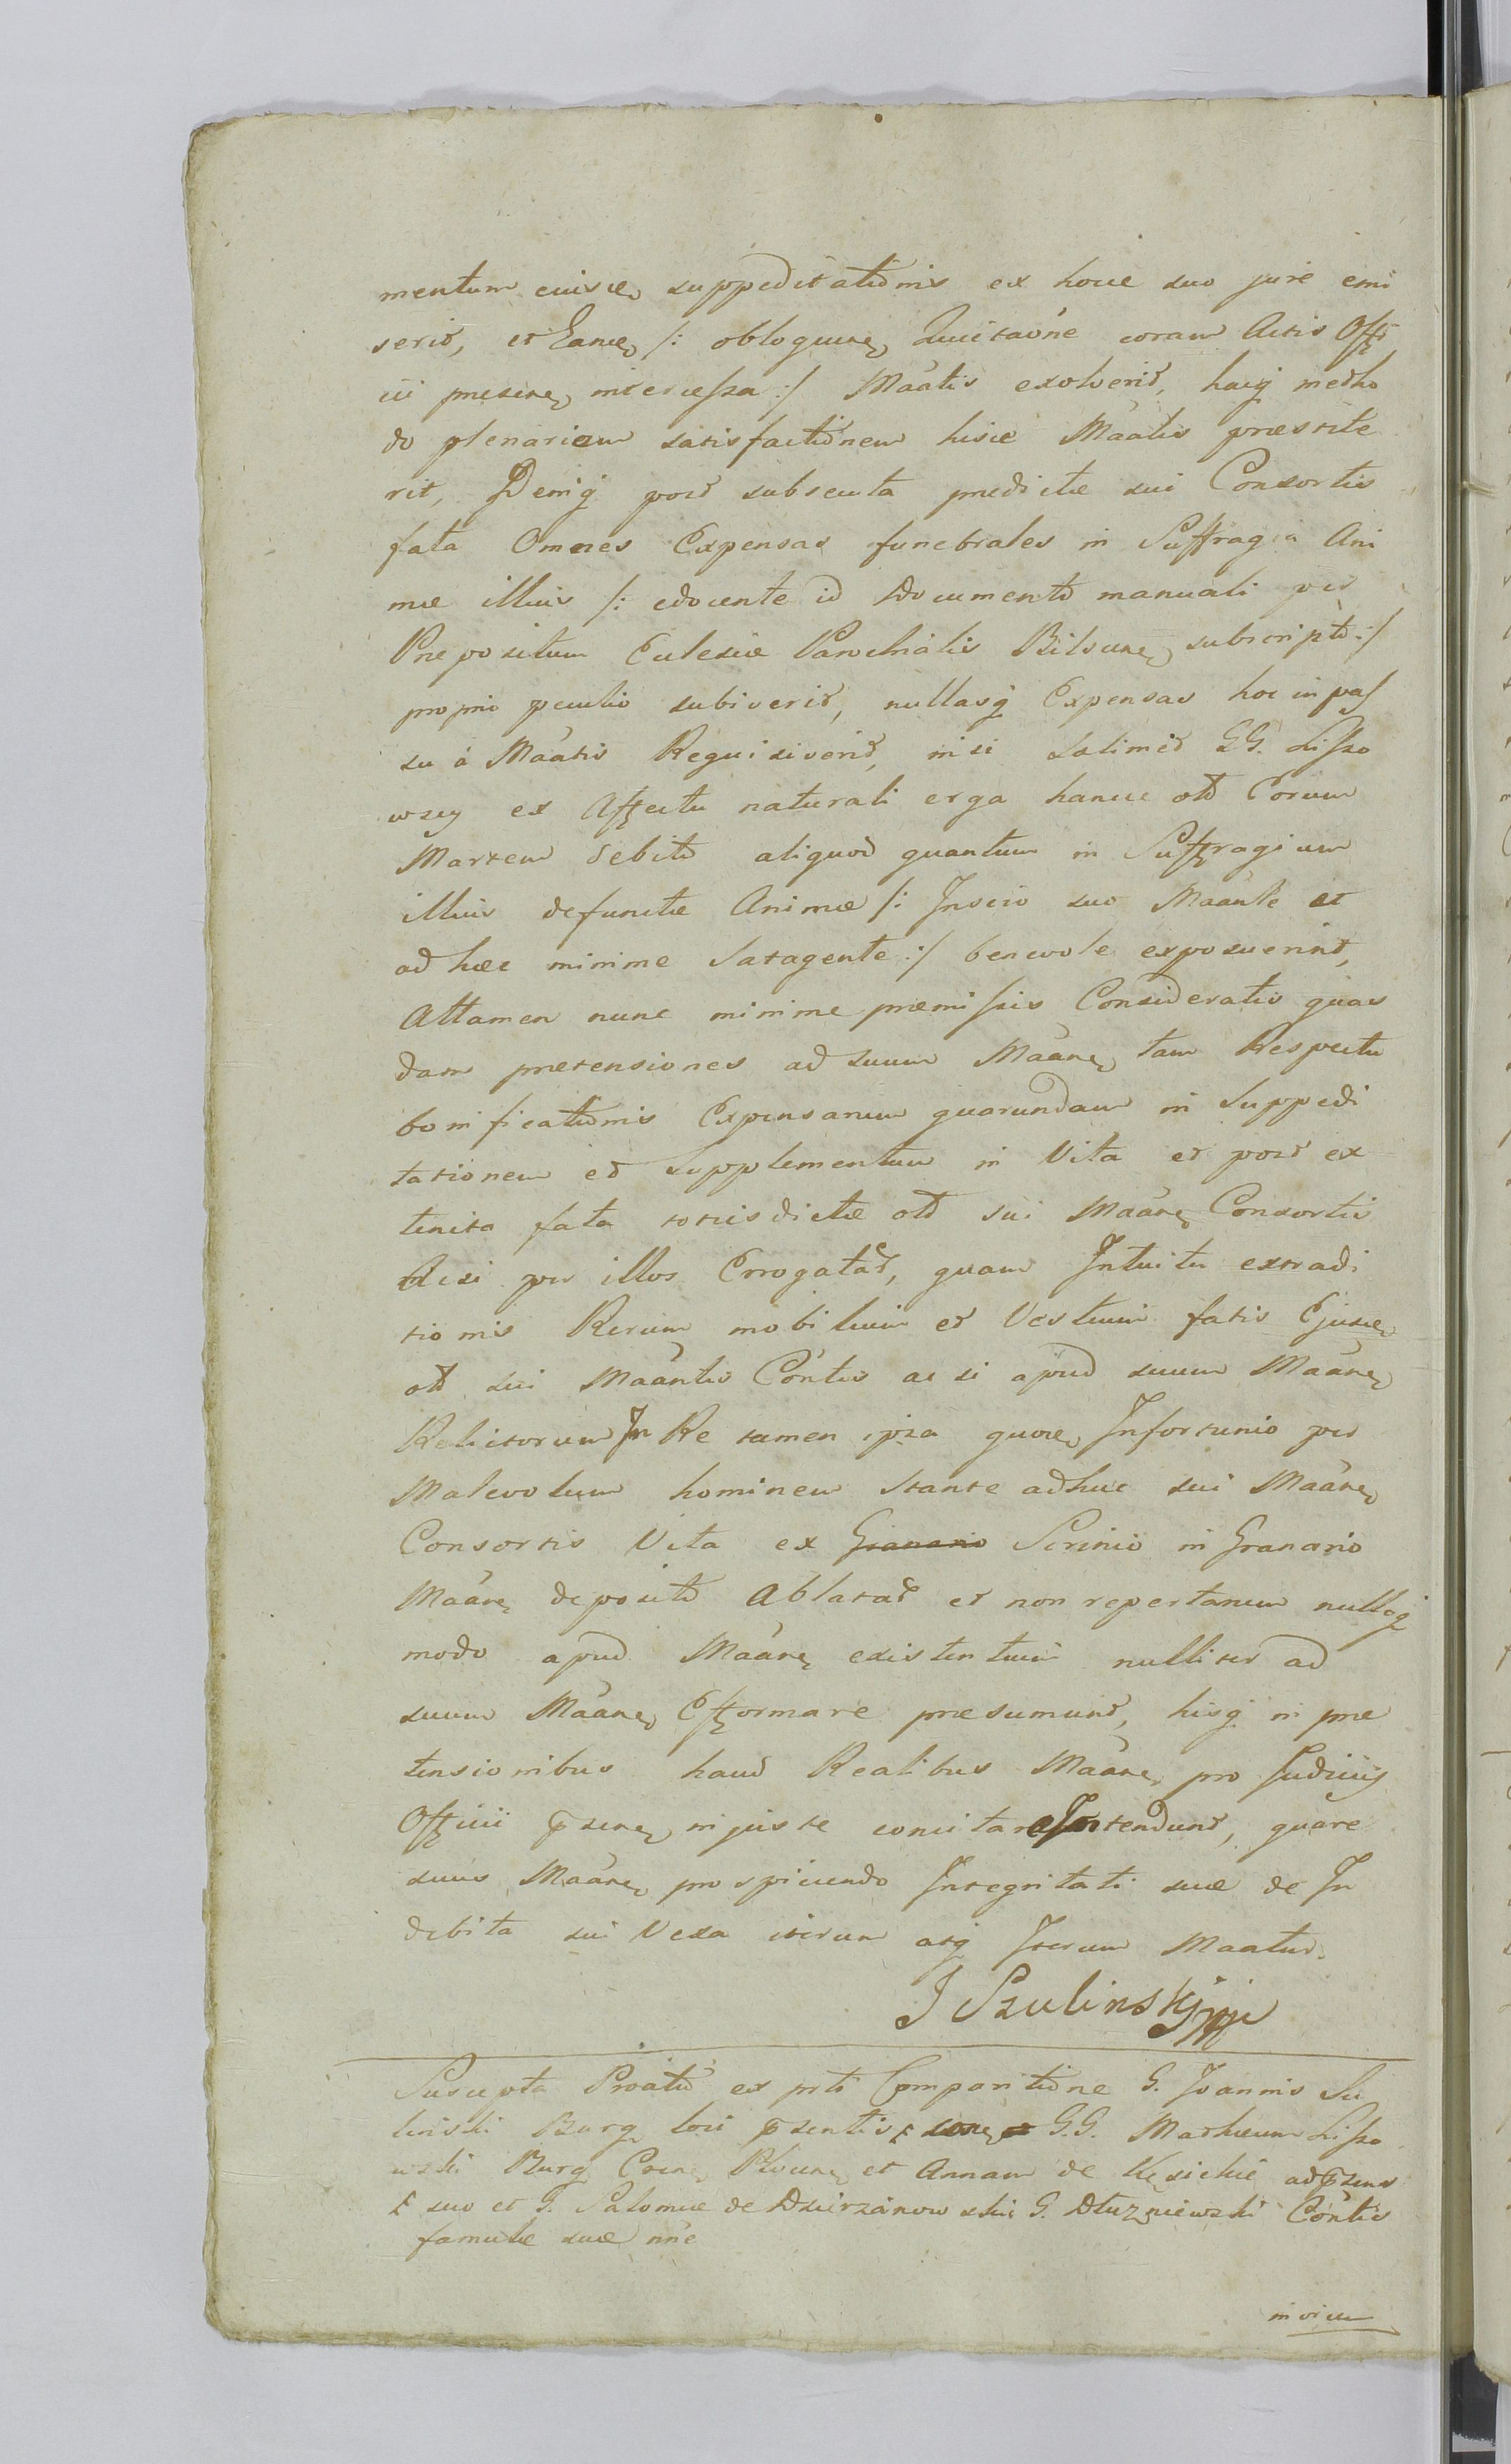 mentum eiusce suppeditationis ex hocce suo jure emi
serit, et Eance /: obloquen Quietaōne coram Actis Offi
cii presen intercessa :/ Māatis exolverit, hacq metho
do plenariam satisfactionem hisce Maatis præstite
rit, Deniq post subsecuta predictæ sui Consortis
fata Omnes Expensas funebrales in Suffragia Ani
mæ illius /: edocente id Documento manuali per
Prepositum Eclesiæ Parochialis Bilscen subscripto :/
proprio peculio subiverit, nullasq Expensas hoc in pas
su á Māatis Requisiverit, nisi Salimet GG. Lisso
wscy ex Affectu naturali erga hancce olim Eorum
Martem debito aliquod quantum in Suffragium
illius defunctæ Animæ /: Inscio suo Maante et
ad hæc minime Satagente :/ benevole exposuerint,
Attamen nunc minime præmissis Consideratis quas
dam pretensiones ad suum Māan tam Respectu
bonificationis Expensarum quarundam in Suppedi
tationem et Supplementum in Vita et post ex
tincta fata totiesdictæ olim sui Māan Consortis
Acsi per illos Erogatar, quam Intuitu extradi
tionis Rerum mobilium et Vestium fatis Ejusce
olim sui Māantis Cōntis ac si apud suum Māan
Relictorum In Re tamen ipsa quove Infortunio per
Malevolum hominem Stante adhuc sui Māan
Consortis Vita ex Granario Scrinio in Granario
Māan deposito Ablatar et non repertarum nulloq
modo apud Māan existentium nulliter ad
suum Māan Efformare præsumunt, hisq in præ
tensionibus haud Realibus Māan pro Judiciis
Officii p̄sen injuste concitare Intendunt, quare
suus Māan prospiciendo Integritati suæ de In
debita sui Vexa iterum atq Iterum Maatur.
J Szulinskj mp
Suscepta Proatio ex prti Comparitione G. Joannis Su
linski Burg loci p̄sentis con GG. Mathæum Lisso
wski Burg Cren Plocen et Annam de Kęsickie ad p̄sens
suo et G. Salomeæ de Dzierzanowskie G. Dłuzniewski Cōntis
famulæ suæ nne
in vicem